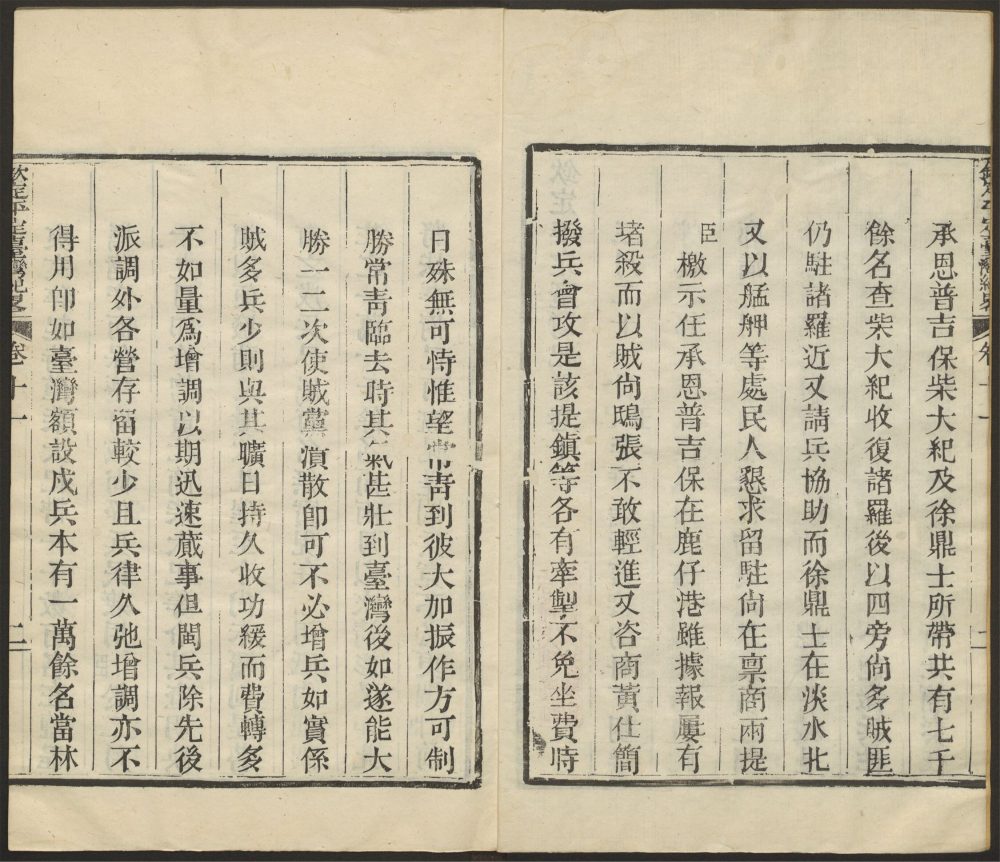 承恩普吉保柴大紀及徐鼎士所帶共有七千
餘名查柴大紀收復諸羅後以四旁尙多賊匪
仍駐諸羅近又請兵協助而徐鼎士在淡水北
又以艋舺等處民人懇求留駐尙在禀商兩提
臣檄示任承恩普吉保在鹿仔港雖據報屢有
堵殺而以賊尙鴟張不敢輕進又咨商黃仕簡
撥兵會攻是該提鎮等各有牽掣不免坐費時
日殊無可恃惟望常靑到彼大加振作方可制
勝常靑臨去時其氣甚壯到臺灣後如遂能大
勝一二次使賊黨潰散卽可不必增兵如實係
賊多兵少則與其曠日持久收功緩而費轉多
不如量爲增調以期迅速蕆事但閩兵除先後
派調外各營存留較少且兵律久弛增調亦不
得用卽如臺灣額設戍兵本有一萬餘名當林
欽定平定臺灣紀畧
卷十一
二